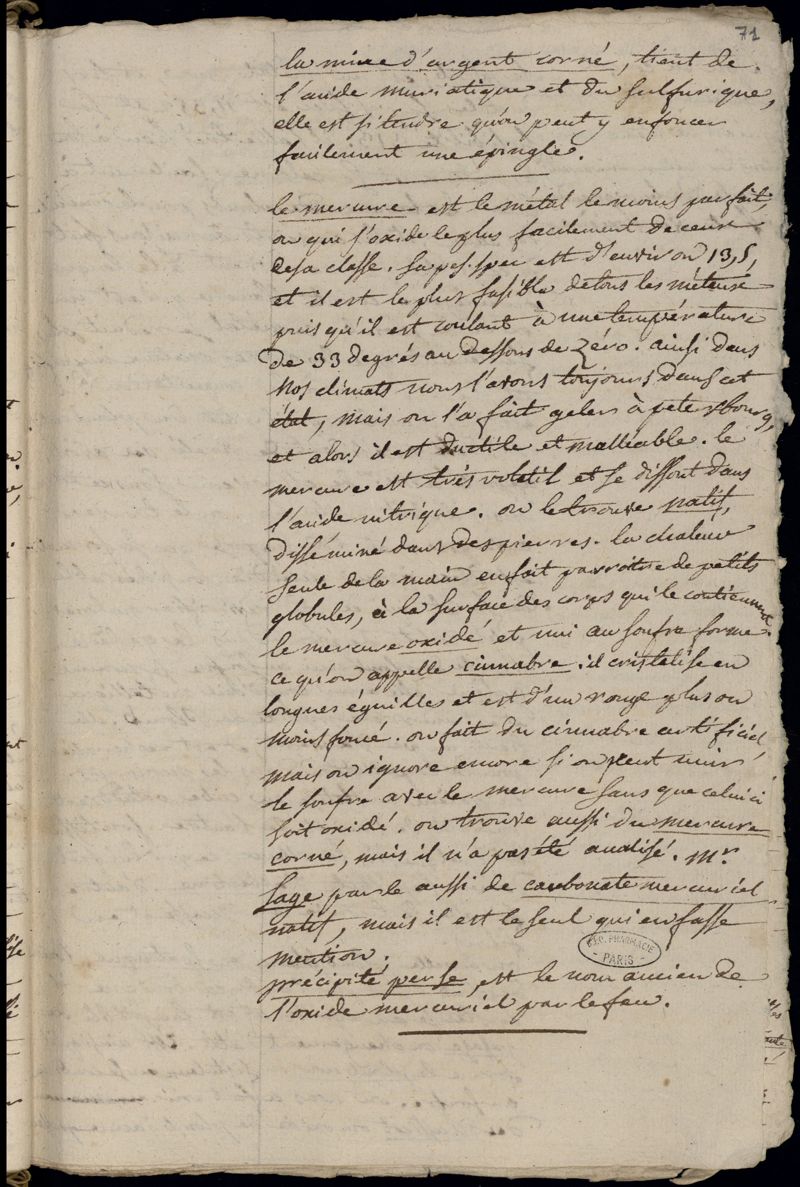 71
la mine d'argent corné, tient de
l'acide muriatique et du sulfurique,
elle est si tendre qu'on peut y enfoncer
facilement une épingle.
le mercure est le métal le moins parfait,
ou qui s'oxide le plus facilement de ceux
de sa classe. sa pes. spec est d'environ 13,5,
et il est le plus fusible de tous les méteaux
puis qu'il est coulant à une température
de 33 degrés au dessous de zéro. ainsi dans
nos climats nous l'avons toujours dans cet
état, mais on l'a fait geler à petersbourg,
et alors il est ductile et malleable. le
mercure est très volatil et se dissout dans
l'acide nitrique. on le trouve natif,
disséminé dans des pierres. la chaleur
seule de la main en fait parroitre de petits
globules, à la surface des corps qui le contiennent.
le mercure oxidé et uni au soufre forme
ce qu'on appelle cinnabre. il cristalise en
longues éguilles et est d'un rouge plus ou
moins foncé. on fait du cinnabre artificiel
mais on ignore encore si on peut unir
le soufre avec le mercure sans que celui ci
soit oxidé. on trouve aussi du mercure
corné, mais il n'a pas été analisé. Mr.
Sage parle aussi de carbonate mercuriel
natif, mais il est le seul qui en fasse
mention.
BIB. PHARMACIE
PARIS
précipité per se, est le nom ancien de
l'oxide mercuriel par le feu.